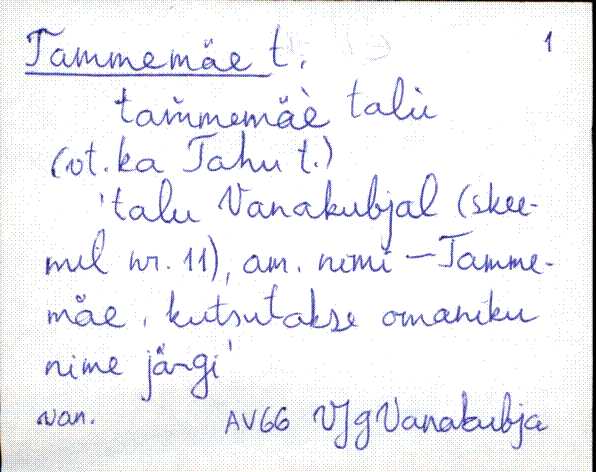 Tammemäe t. 1
tam̆memäè talù
(vt. ka Tahu t.)
'talu Vanakubjal (skee-
mil nr. 11), am. nimi – Tamme-
mäe, kutsutakse omaniku
nime järgi'
van. AV66 VJg Vanakubja